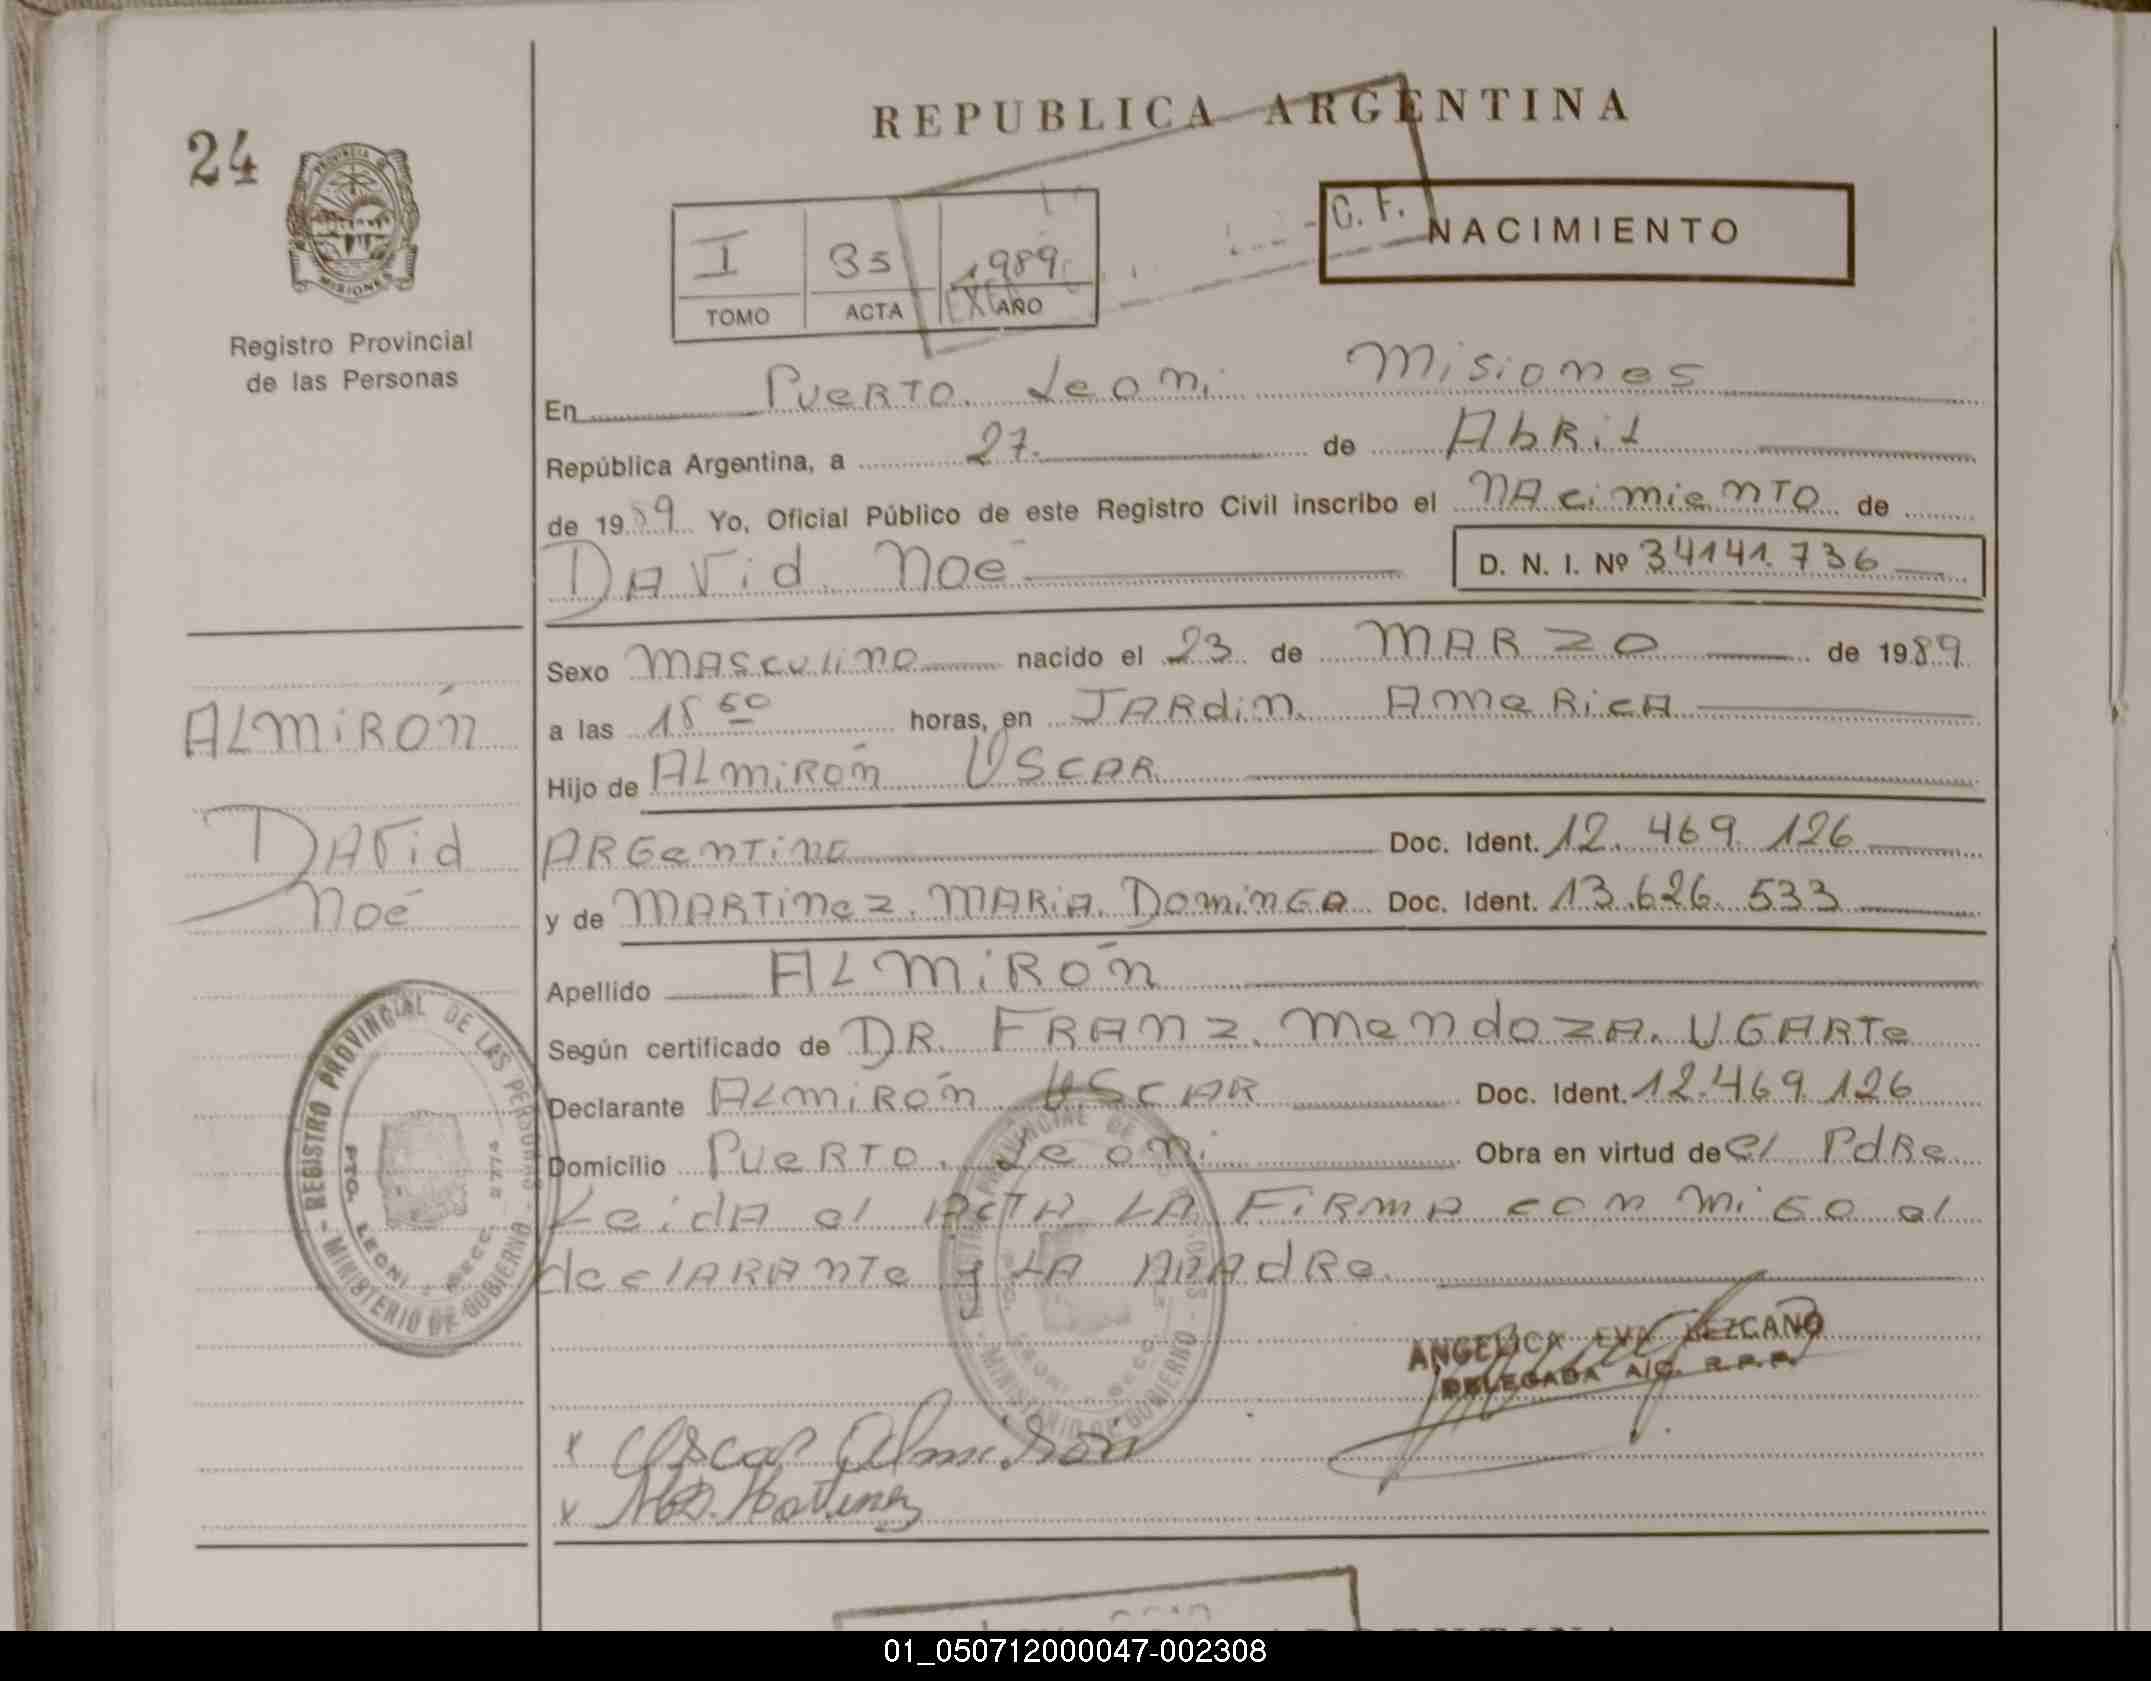 REPUBLICA ARGENTINA
24
PROVINCIA DE
MISIONES
Registro Provincial
de las Personas
NACIMIENTO
C. F.
I 35 1989
TOMO ACTA AÑO
En Puerto Leoni Misiones
República Argentina, a 27 de Abril
de 1989 Yo, Oficial Público de este Registro Civil inscribo el NAcimiento de
DAVid Noé D. N. I. Nº 34141.736
Sexo MAsculino nacido el 23 de MARZO de 1989
a las horas, en JARdin AmeRicA
Hijo de ALmiRón OSCAR
ARGentino Doc. Ident. 12.469.126
y de MARTinez MARiA DominGA Doc. Ident. 13.626.533
Apellido ALmiRón
Según certificado de DR. FRANZ MendozA UGARTe
Declarante ALmiRón OSCAR Doc. Ident. 12.469.126
Domicilio PueRTO Leoni Obra en virtud de el PdRe
LeidA el ACTA LA FiRmA con miGo el
declARAnTe y LA mAdRe.
ALmiRón
DAVid
Noé
REGISTRO PROVINCIAL DE LAS PERSONAS
PTO. LEONI - SECC. 2774
- MINISTERIO DE GOBIERNO -
PROVINCIAL DE
MINISTERIO DE GOBIERNO
ANGELICA EVA LEZCANO
DELEGADA A/C. R.P.P.
x Oscar Almiron
x M.D. Martinez
01_050712000047-002308